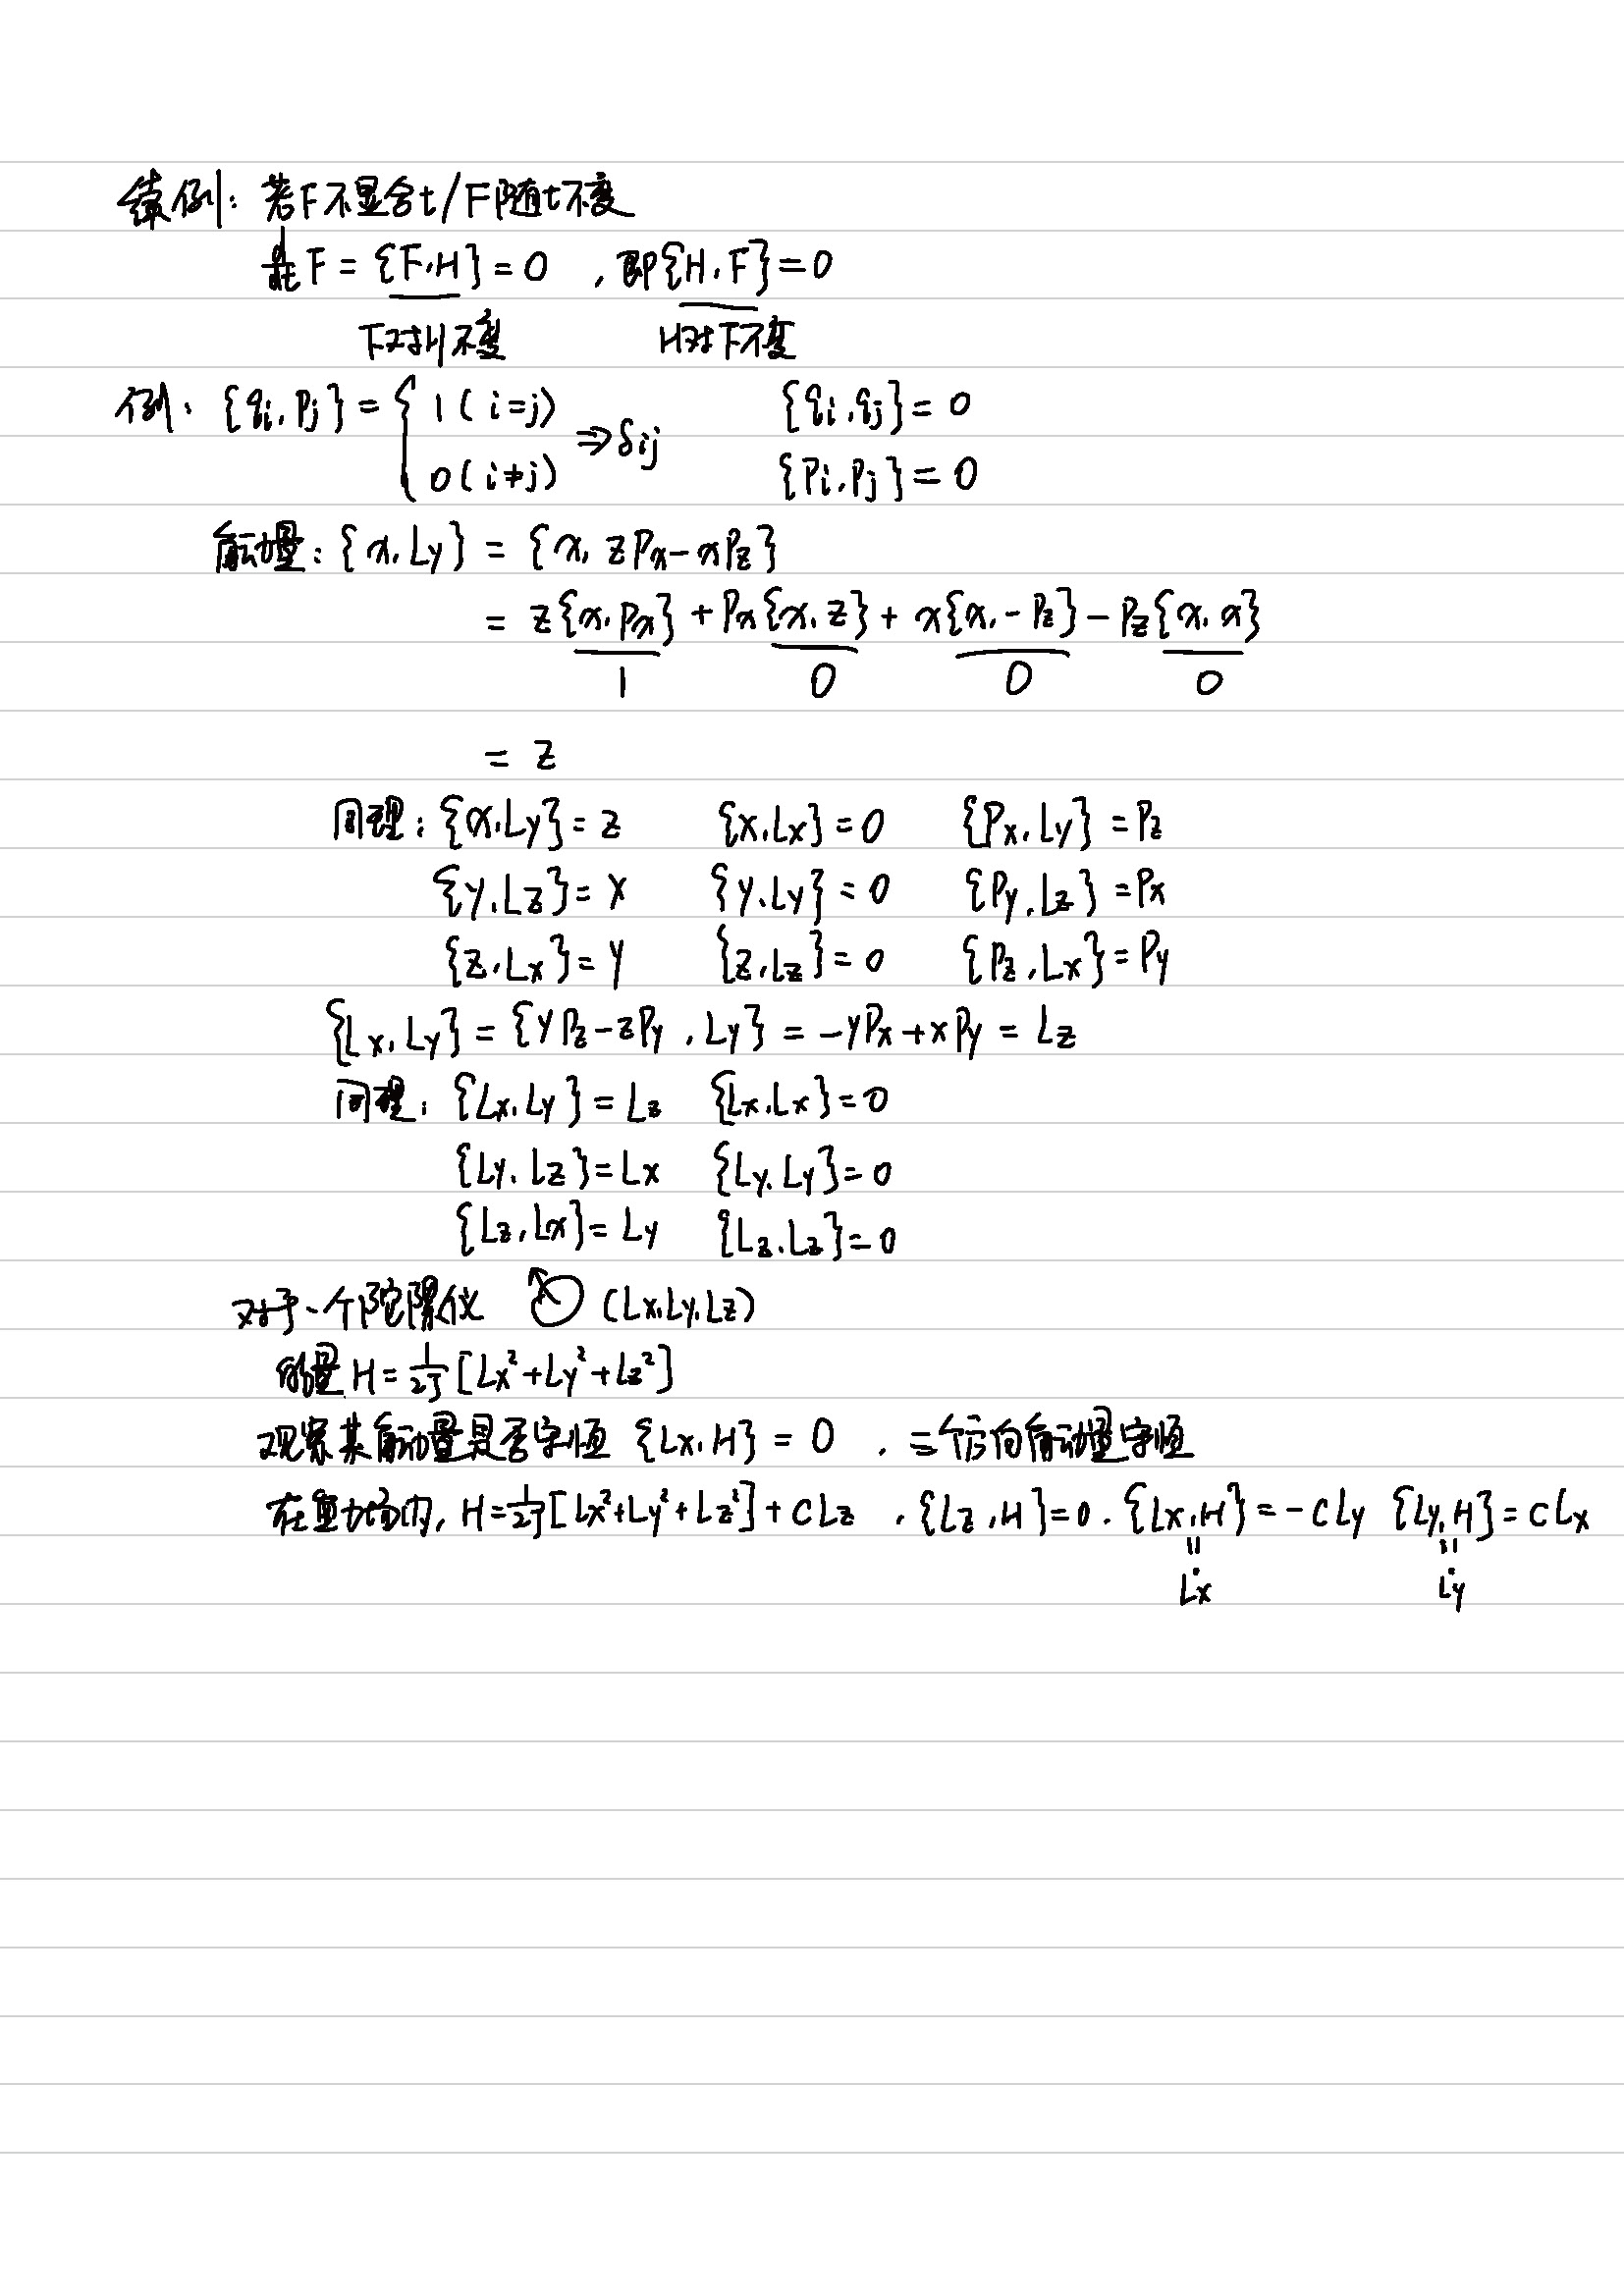 续例：若F不显含t/F随t不变
d/dt F = {F,H} = 0 ，即{H,F} = 0
F对H不变 H对F不变
例：{qi,Pj} = { 1 (i=j) ⇒ δij {qi,qj} = 0
0 (i≠j) {Pi,Pj} = 0
角动量：{x,Ly} = {x, zPx-xPz}
= z{x,Px} + Px{x,z} + x{x,-Pz} - Pz{x,x}
1 0 0 0
= z
同理：{x,Ly} = z {x,Lx} = 0 {Px,Ly} = Pz
{y,Lz} = x {y,Ly} = 0 {Py,Lz} = Px
{z,Lx} = y {z,Lz} = 0 {Pz,Lx} = Py
{Lx,Ly} = {yPz-zPy,Ly} = -yPx+xPy = Lz
同理：{Lx,Ly} = Lz {Lx,Lx} = 0
{Ly,Lz} = Lx {Ly,Ly} = 0
{Lz,Lx} = Ly {Lz,Lz} = 0
对于一个陀螺仪 (Lx,Ly,Lz)
能量 H = 1/2J [Lx²+Ly²+Lz²]
观察其角动量是否守恒 {Lx,H} = 0 ，三个方向角动量守恒
在重力场内，H = 1/2J [Lx²+Ly²+Lz²] + CLz ，{Lz,H} = 0，{Lx,H} = -CLy {Ly,H} = CLx
= =
L̇x L̇y